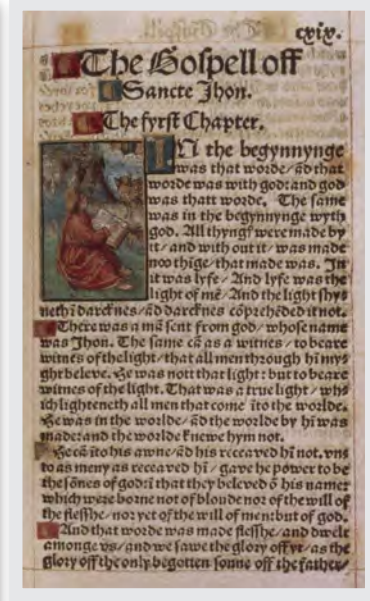 cxix.
The Gospell off
Sancte Jhon.
The fyrst Chapter.
IN the begynnynge
was that worde/ ād that
worde was with god: and god
was thatt worde. The same
was in the begynnynge wyth
god. All thyngs were made by
it/ and with out it/ was made
noo thīge/ that made was. In
it was lyfe/ And lyfe was the
light of mē/ And the light shyn
neth ī darcknes/ ād darcknes cōprehēded it not.
There was a mā sent from god/ whose name
was Jhon. The same cā as a witnes/ to beare
witnes of the light/ that all men through hī my
ght beleve. He was nott that light: but to beare
witnes of the light. That was a true light/ whi
ich lighteneth all men that come īto the worlde.
He was in the worlde/ ād the worlde by hī was
made: and the worlde knewe hym not.
He cā īto his awne/ ād his receaved hī not. vn
to as meny as receaved hī/ gave he power to be
the sōnes of god: ī that they beleved ō his name:
which were borne not of bloude nor of the will of
the flesshe/ nor yet of the will of men: but of god.
And that worde was made flesshe/ and dwelt
amonge vs/ and we sawe the glory off yt/ as the
glory off the only begotten sonne off the father/